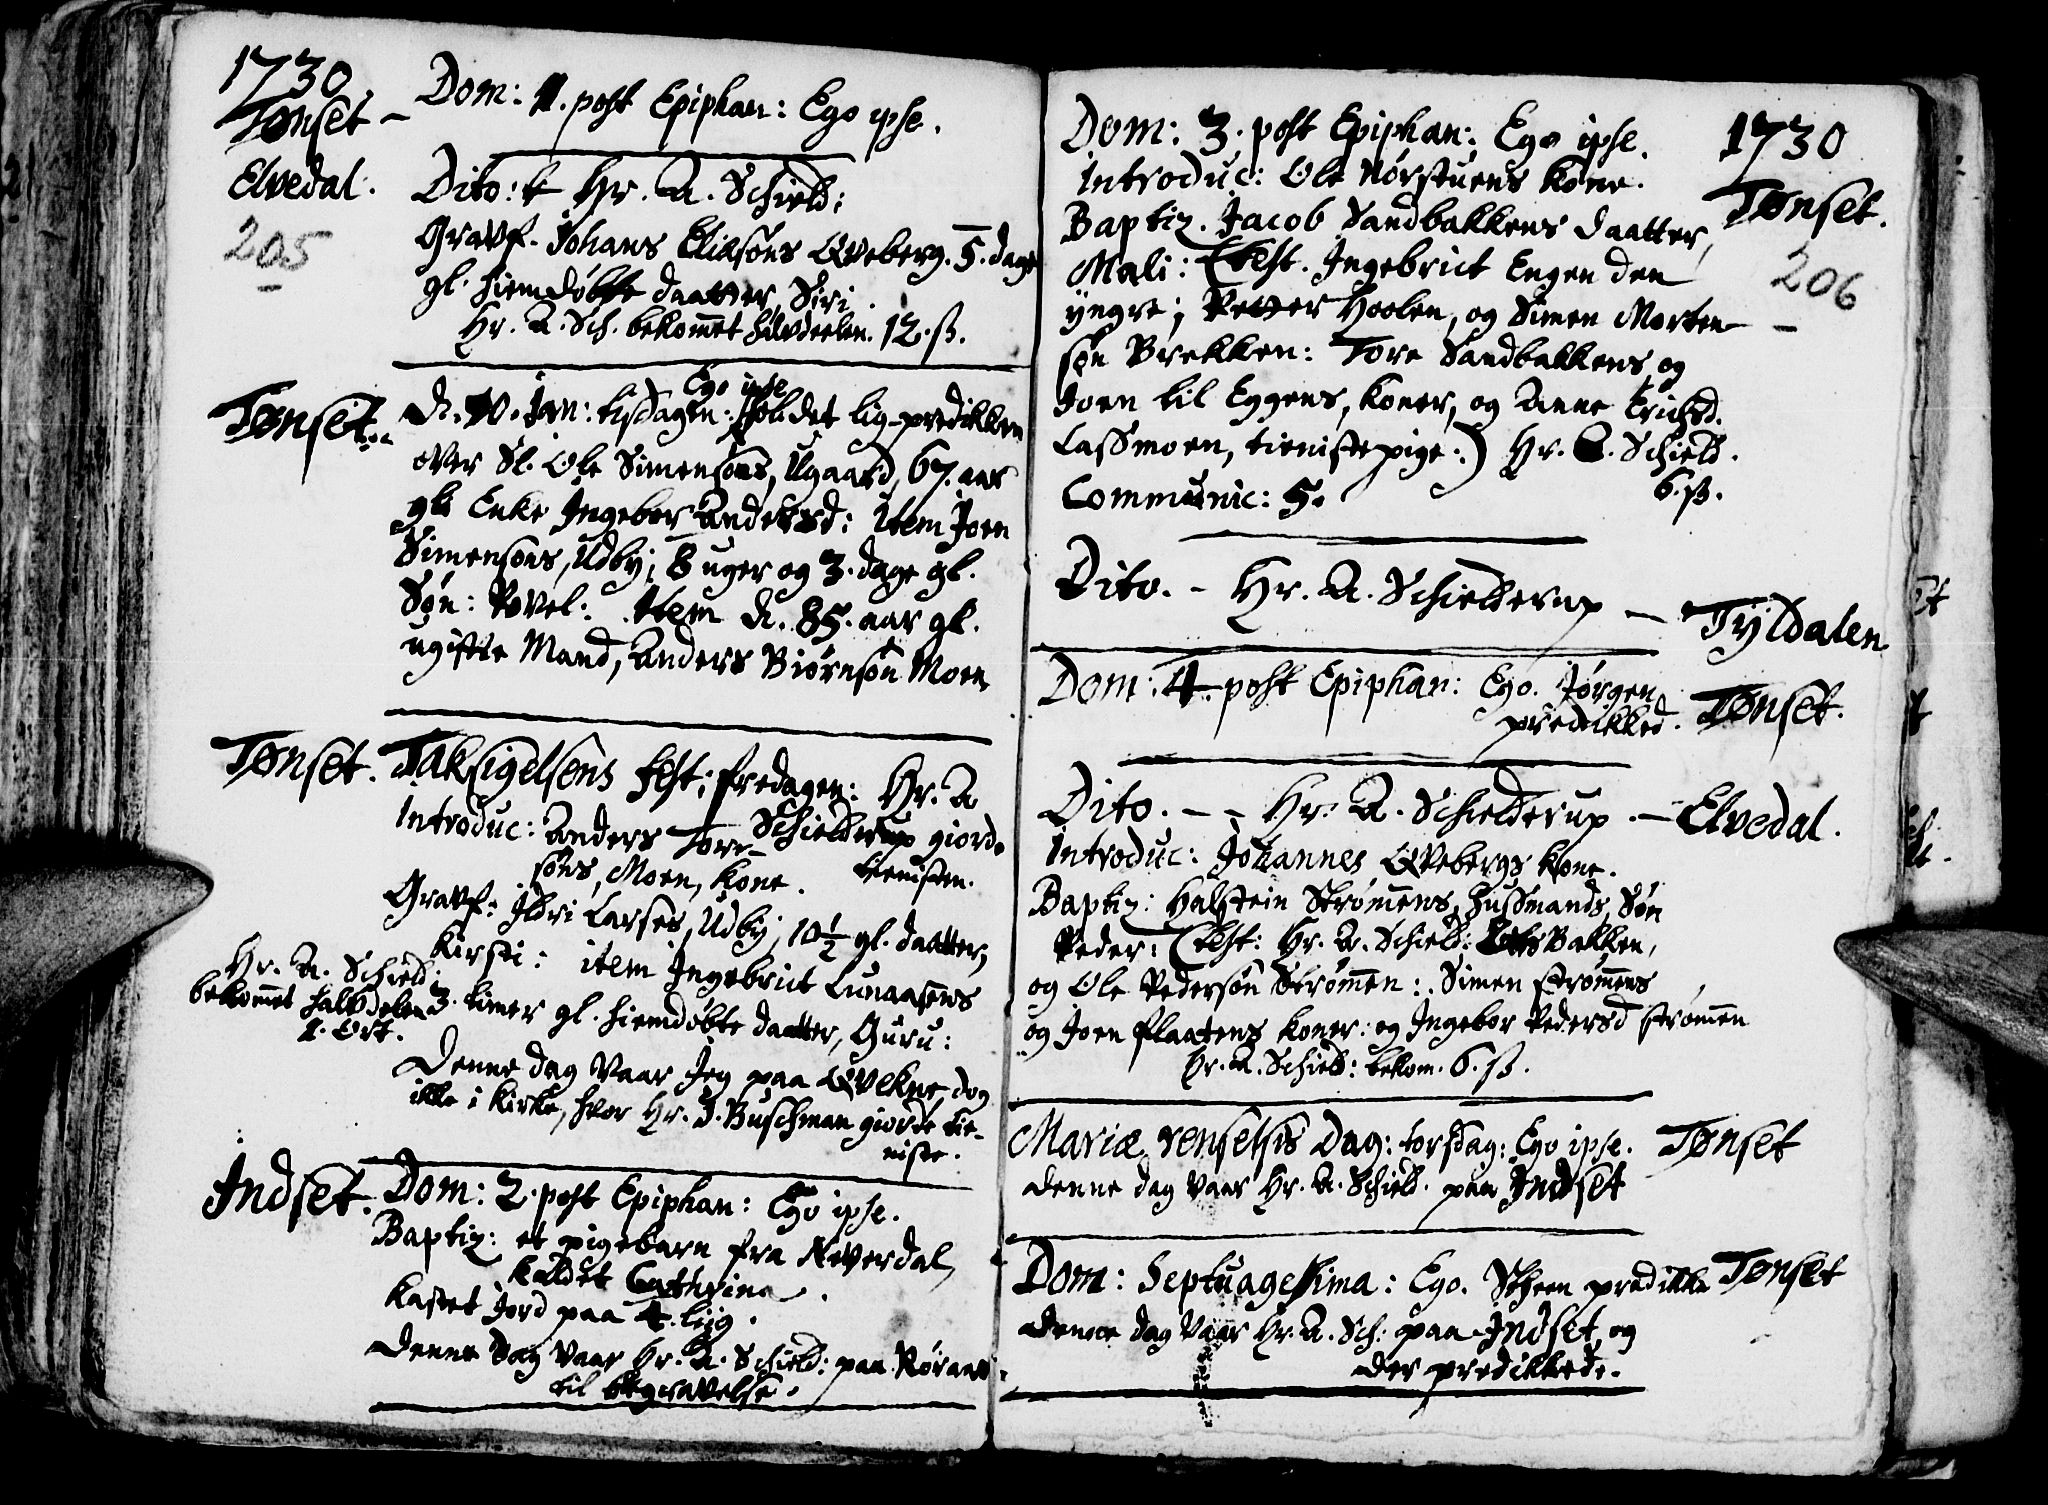 1730.
Tønset - Dom: 1. post Epiphan: Ego ipse.
Elvedal. Dito: Hr. A. Schield:
205
Gravf. Johans Eliasøns Qveberg. 5. dage
gl. hiemdøbte daatter, Siri.
Hr. A. Sch. bekommet halvdeelen. 12. ß.
Ego ipse
Tønset. d. 10. Jan: tisdagen: holdet lig-predikken
over Sl. Ole Simensøns, Ugaard, 67. aar
gl: Enke Ingebor Andersd: Item Joen
Simensøns, Udby; 8 uger og 3. dage gl.
Søn: Povel: Item d. 85. aar gl.
ugifte Mand, Anders Biørnsøn Moen.
Tønset. Taksigelsens fest; fredagen: Hr. A
Schielderup giorde
tienisten.
Introduc: Anders Tore-
søns, Moen, kone.
Gravf: Ildri Larses, Udby, 10½ gl. daatter,
Kirsti: item Ingebrict Lunaasens
3. timer gl. hiemdøbte daatter, Guru:
Hr. A. Schield:
bekommet halvdelen
1. Ort.
Denne dag vaar Jeg paa Qvekne, dog
ikke i kirke, hvor Hr. J. Buschman giorde tie-
niste.
Indset. Dom: 2. post Epiphan: Ego ipse.
Baptiz: et pigebarn fra Neverdal,
kaldet Cathrina.
Kastet Jord paa 4. liig.
Denne Dag vaar Hr. A. Schield: paa Røraas
til begravelse.
Dom: 3. post Epiphan: Ego ipse. 1730
Introduc: Ole Nørstuens kone. Tønset.
206
Baptiz. Jacob Sandbakkens daatter,
Mali: (test. Ingebrict Engen den
yngre; Petter Hoolen, og Simen Morten-
søn Brekken: Tore Sandbakkens og
Joen til Eggens, koner, og Anne Erichsd.
Lassmoen, tienistepige:) Hr. A. Schield.
6. ß.
Communic: 5.
Dito. - Hr. A. Schielderup - Tyldalen.
Dom: 4. post Epiphan: Ego. Jørgen
predikked. Tønset.
Dito. - - Hr. A. Schielderup. - Elvedal.
Introduc: Johannes Qvebergs kone.
Baptiz: Halstein Strømens, Hussmands, Søn
Peder: (test: Hr. A. Schield: Bakken,
og Ole Pedersøn Strømen: Simen Strømens
og Joen flaatens koner: og Ingebor Pedersd Strømen
Hr. A. Schield: bekom. 6. ß.
Mariæ renselsis Dag: torsdag: Ego ipse. Tønset
denne dag vaar Hr. A. Schield. paa Indset
Dom: Septuagesima: Ego. Steen predikke Tønset
denne dag vaar Hr. A. Sch: paa Indset, og
der predikkede.